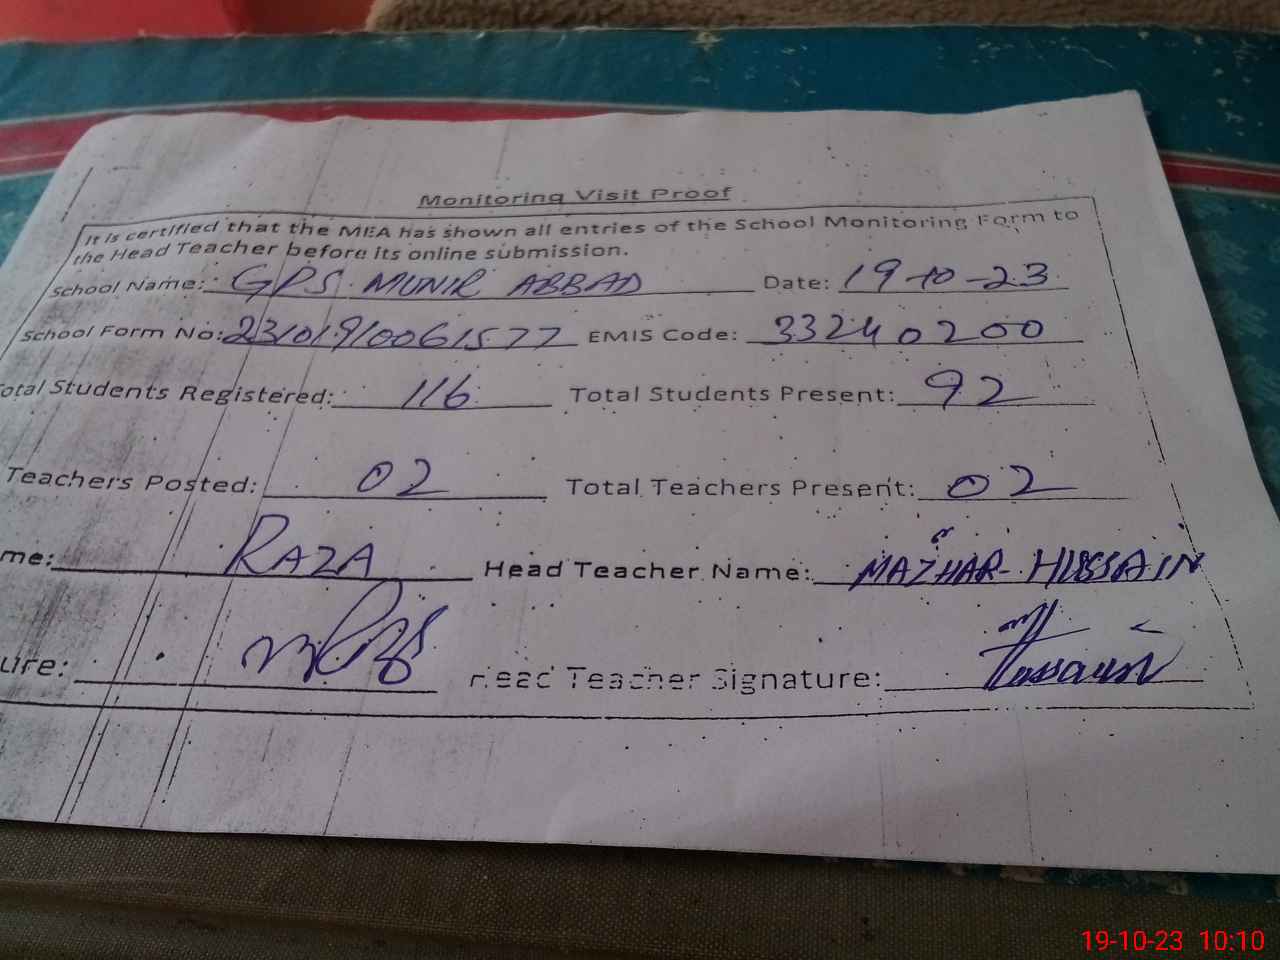 Monitoring Visit Proof
It is certified that the MEA has shown all entries of the School Monitoring Form to
the Head Teacher before its online submission.
School Name: GPS MUNIR ABBAD Date: 19-10-23
School Form No: 23101910061577 EMIS Code: 33240200
otal Students Registered: 116 Total Students Present: 92
Teachers Posted: 02 Total Teachers Present: 02
me: RAZA Head Teacher Name: MAZHAR HUSSAIN
ure: Head Teacher Signature:
19-10-23 10:10